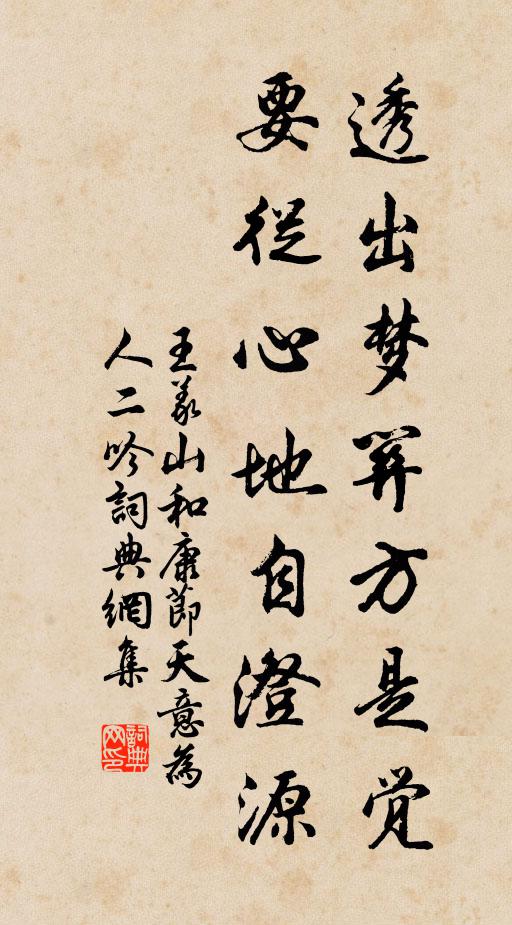 透出梦關方是覺
要從心地自澄源
王義山和康節天意為
人二吟詞典網集
詞典网印